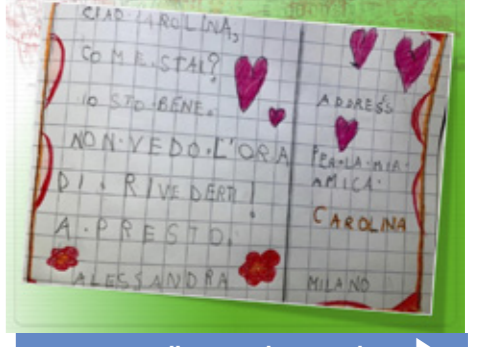 CIAO CAROLINA,
COME.STAI?
IO STO.BENE.
NON.VEDO.L'ORA
DI.RIVEDERTI!
A.PRESTO.
ALESSANDRA
ADDRESS
PER.LA.MIA.
AMICA.
CAROLINA
MILANO